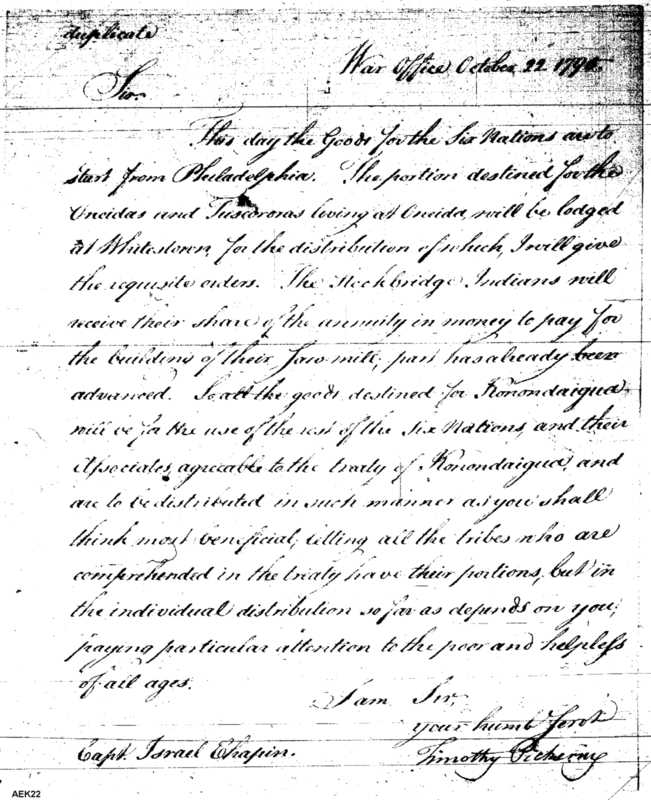 duplicate
War Office October 22 1795.
Sir,
This day the Goods for the Six Nations are to
start from Philadelphia. The portion destined for the
Oneidas and Tuscororas living at Oneida, will be lodged
at Whitestown, for the distribution of which, I will give
the requisite orders. The Stockbridge Indians will
receive their share of the annuity in money to pay for
the building of their saw-mill; part has already been
advanced. So all the goods destined for Konondaigua
will be for the use of the rest of the Six Nations, and their
Associates, agreeable to the treaty of Konondaigua, and
are to be distributed in such manner as you shall
think most beneficial; letting all the tribes who are
comprehended in the treaty have their portions, but in
the individual distribution so far as depends on you,
paying particular attention to the poor and helpless
of all ages.
I am Sir,
your humb Servt
Capt. Israel Chapin. Timothy Pickering
AEK22